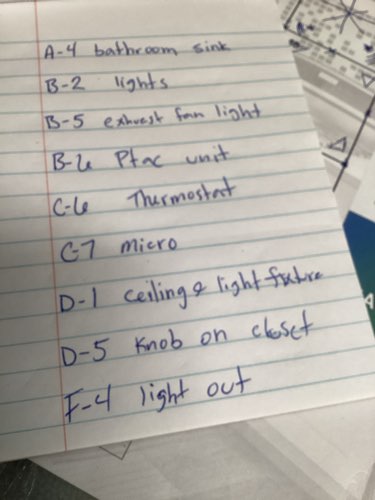 A-4 bathroom sink
B-2 lights
B-5 exhuast fan light
B-6 Ptac unit
C-6 Thermostat
C-7 micro
D-1 ceiling & light fixture
D-5 Knob on closet
F-4 light out